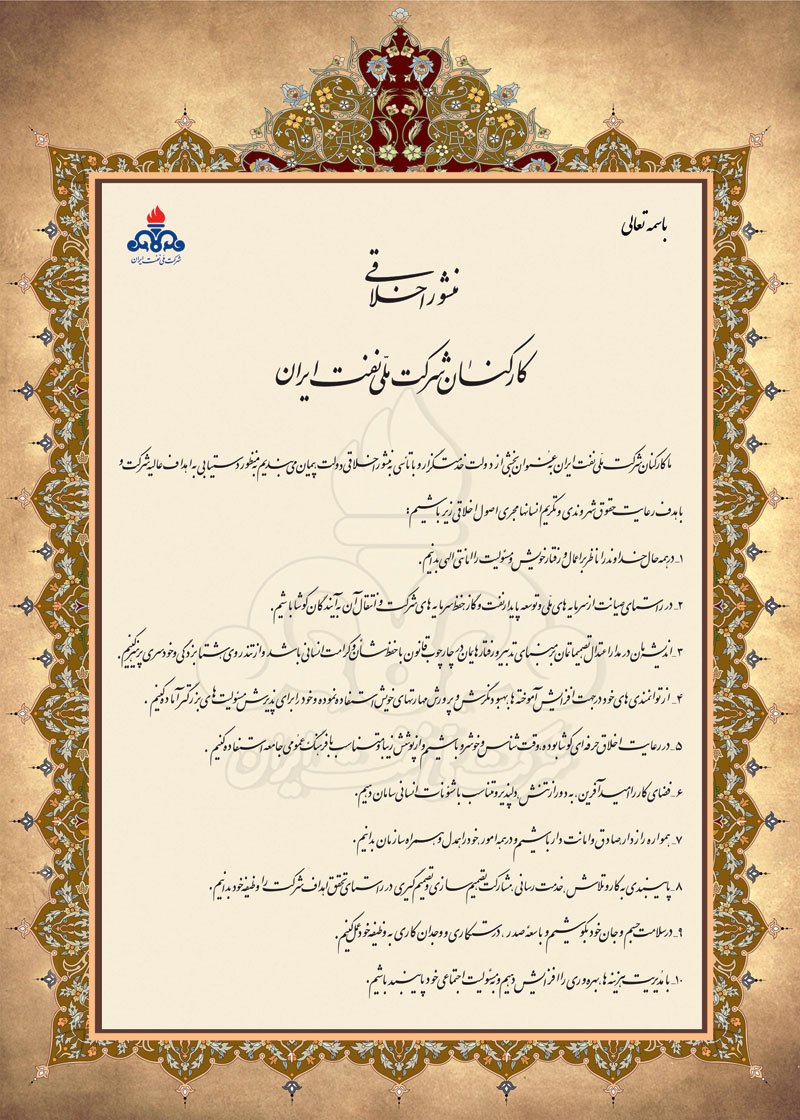 باسمه تعالی
شرکت ملی نفت ایران
منشور اخلاقی
کارکنان شرکت ملّی نفت ایران
ما کارکنان شرکت ملّی نفت ایران به عنوان بخشی از دولت خدمتگزار و با تأسی به منشور اخلاقی دولت پیمان می بندیم به منظور دستیابی به اهداف عالیه شرکت و
با هدف رعایت حقوق شهروندی و تکریم انسانها مجری اصول اخلاقی زیر باشیم:
۱_ در همه حال خداوند را ناظر بر اعمال و رفتار خویش و مسئولیت را امانتی الهی بدانیم.
۲_ در راستای صیانت از سرمایه های ملّی و توسعه پایدار نفت و گاز حفظ سرمایه های شرکت و انتقال آن به آیندگان کوشا باشیم.
۳_ اندیشه مان در مدار اعتدال تصمیماتمان بر مبنای تدبیر و رفتارهایمان در چارچوب قانون با حفظ شأن و کرامت انسانی باشد و از تندروی شتابزدگی و خودسری بپرهیزیم.
۴_ از توانمندی های خود در جهت افزایش آموخته ها، بهبود نگرش و پرورش مهارتهای خویش استفاده نموده و خود را برای پذیرش مسئولیت های بزرگتر آماده کنیم.
۵_ در رعایت اخلاق حرفه ای کوشا بوده، وقت شناس و خوشرو باشیم و از پوشش زیبا و متناسب با فرهنگ عمومی جامعه استفاده کنیم.
۶_ فضای کار را امیدآفرین، به دور از تنش، دلپذیر و متناسب با شئونات انسانی سامان دهیم.
۷_ همواره رازدار، صادق و امانت دار باشیم و در همه امور، خود را همدل و همراه سازمان بدانیم.
۸_ پایبندی به کار و تلاش، خدمت رسانی، مشارکت، تصمیم سازی و تصمیم گیری در راستای تحقق اهداف شرکت را وظیفه خود بدانیم.
۹_ در سلامت جسم و جان خود بکوشیم و با سعۀ صدر، درستکاری و وجدان کاری به وظیفه خود عمل کنیم.
۱۰_ با مدیریت هزینه ها، بهره وری را افزایش دهیم و به مسئولیت اجتماعی خود پایبند باشیم.
شرکت ملی نفت ایران